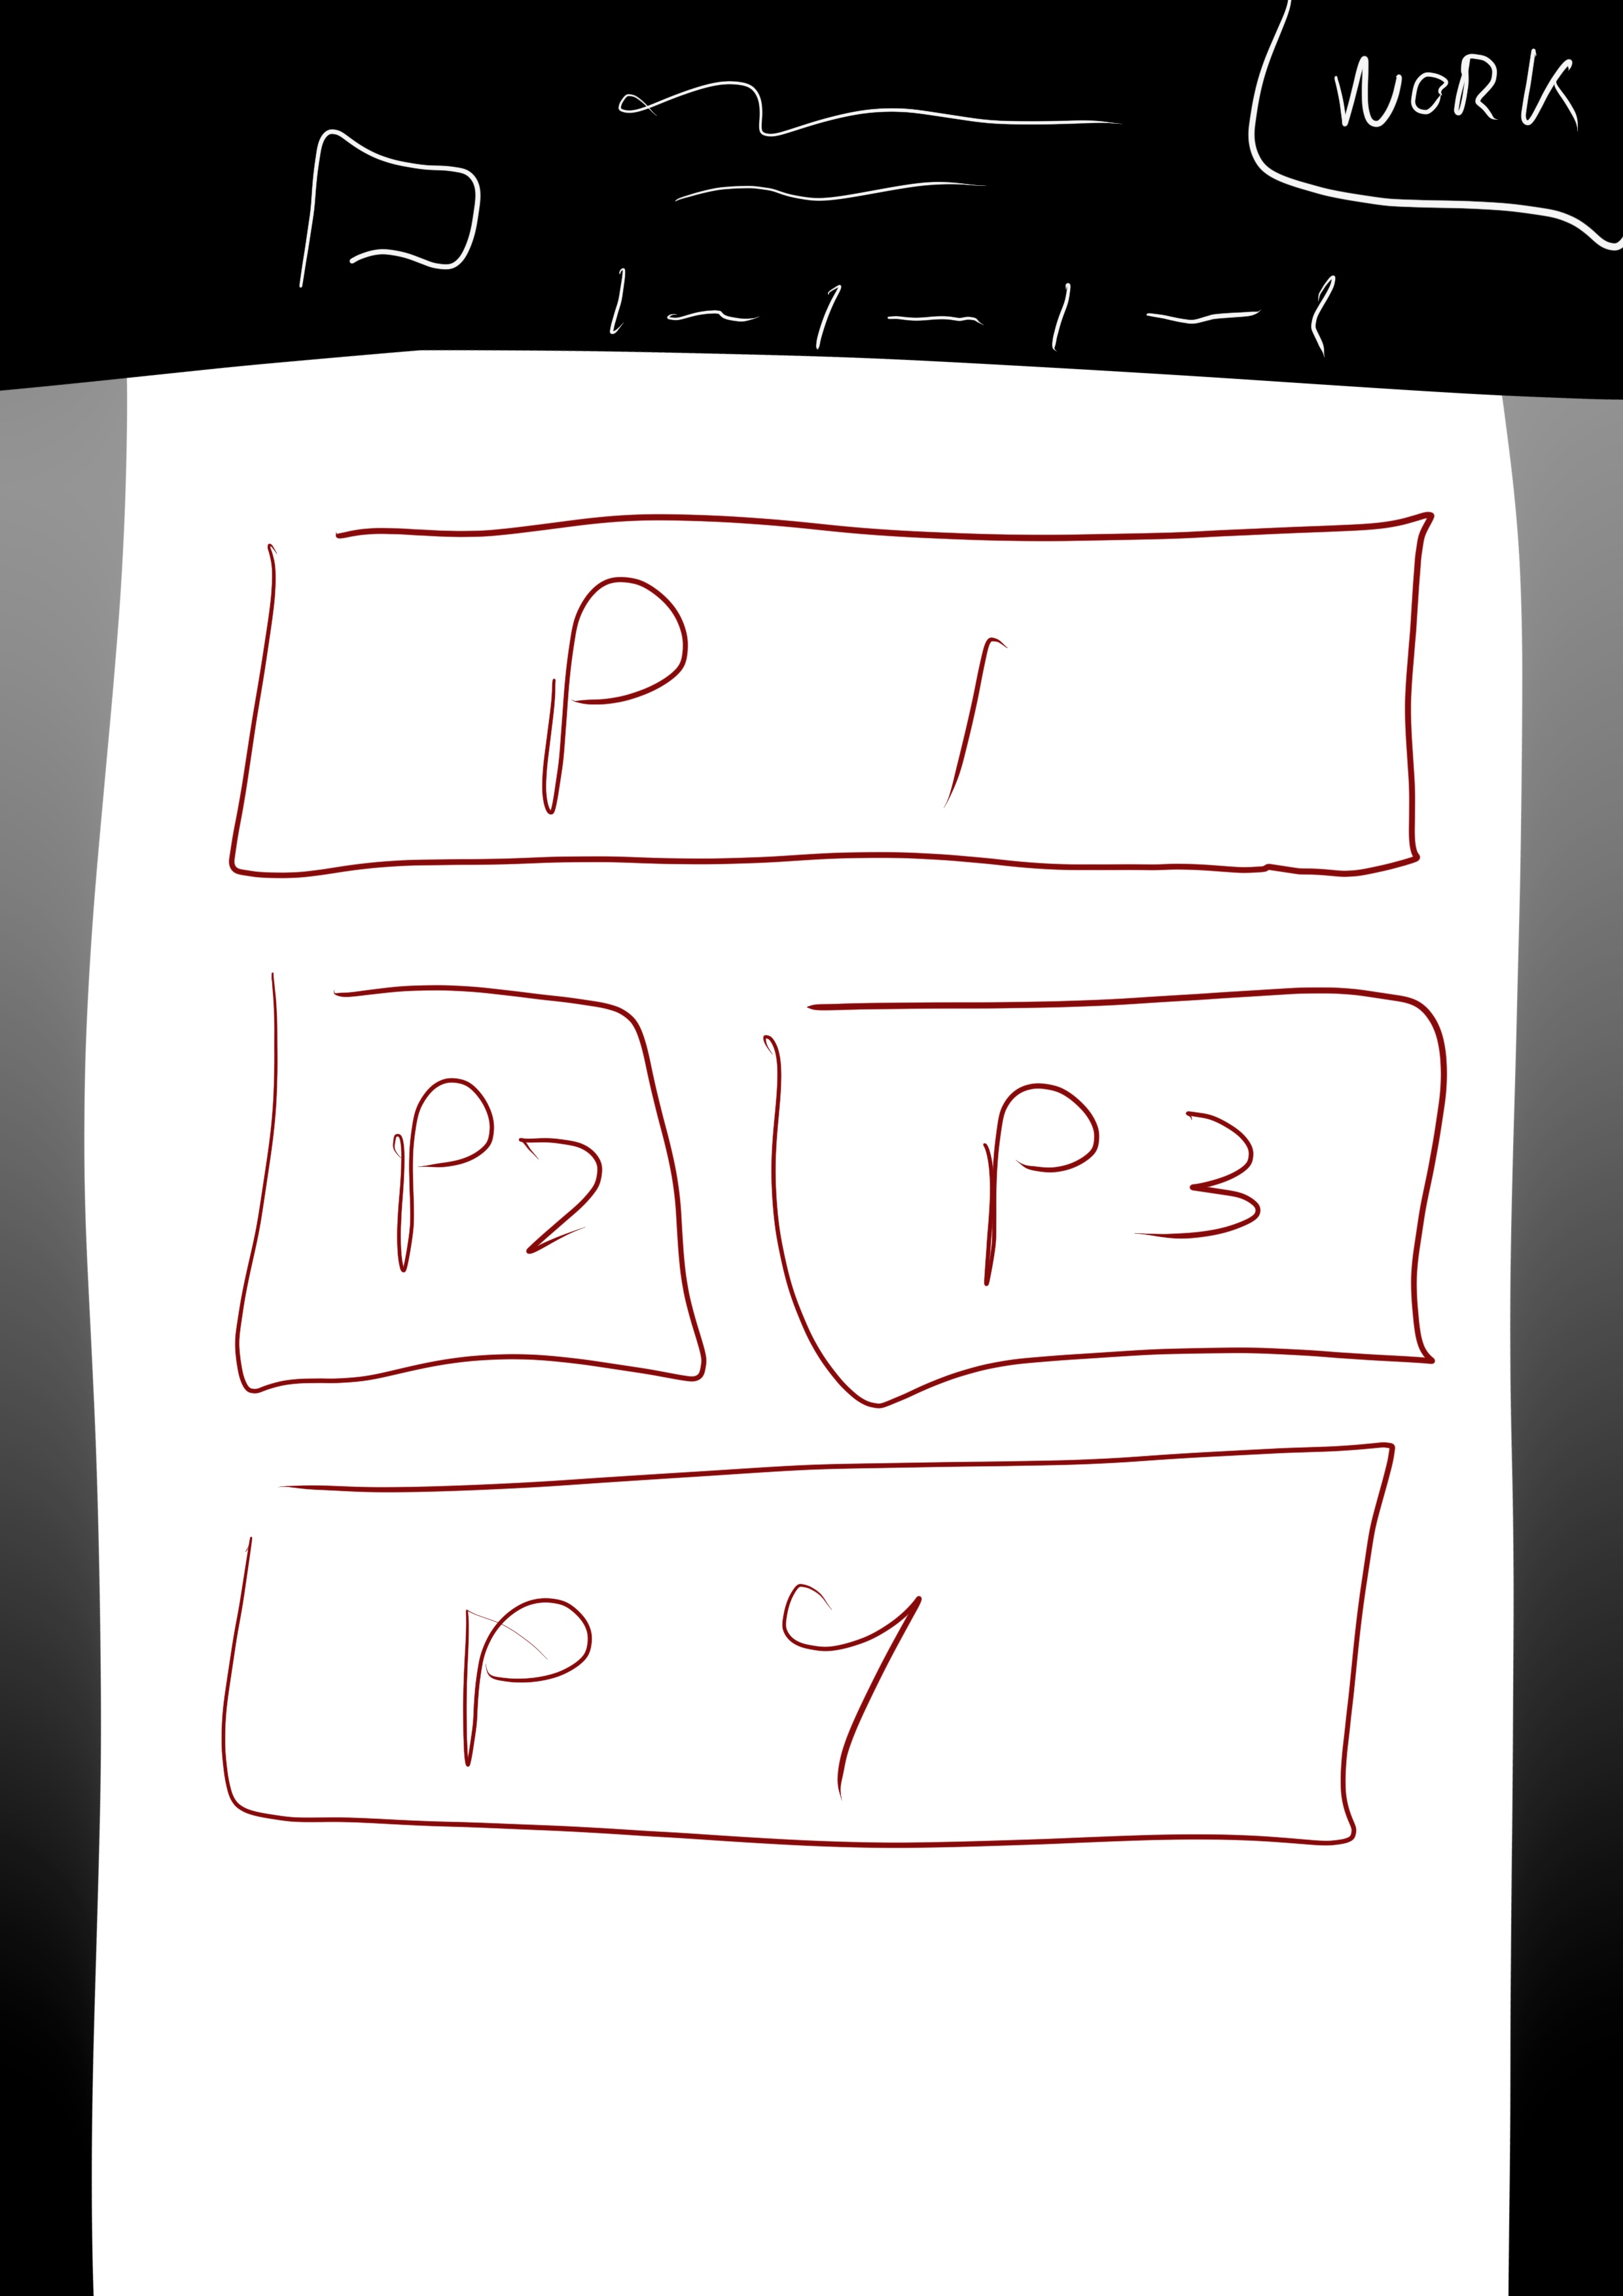 WORK
P 1
P2
P 3
P 4